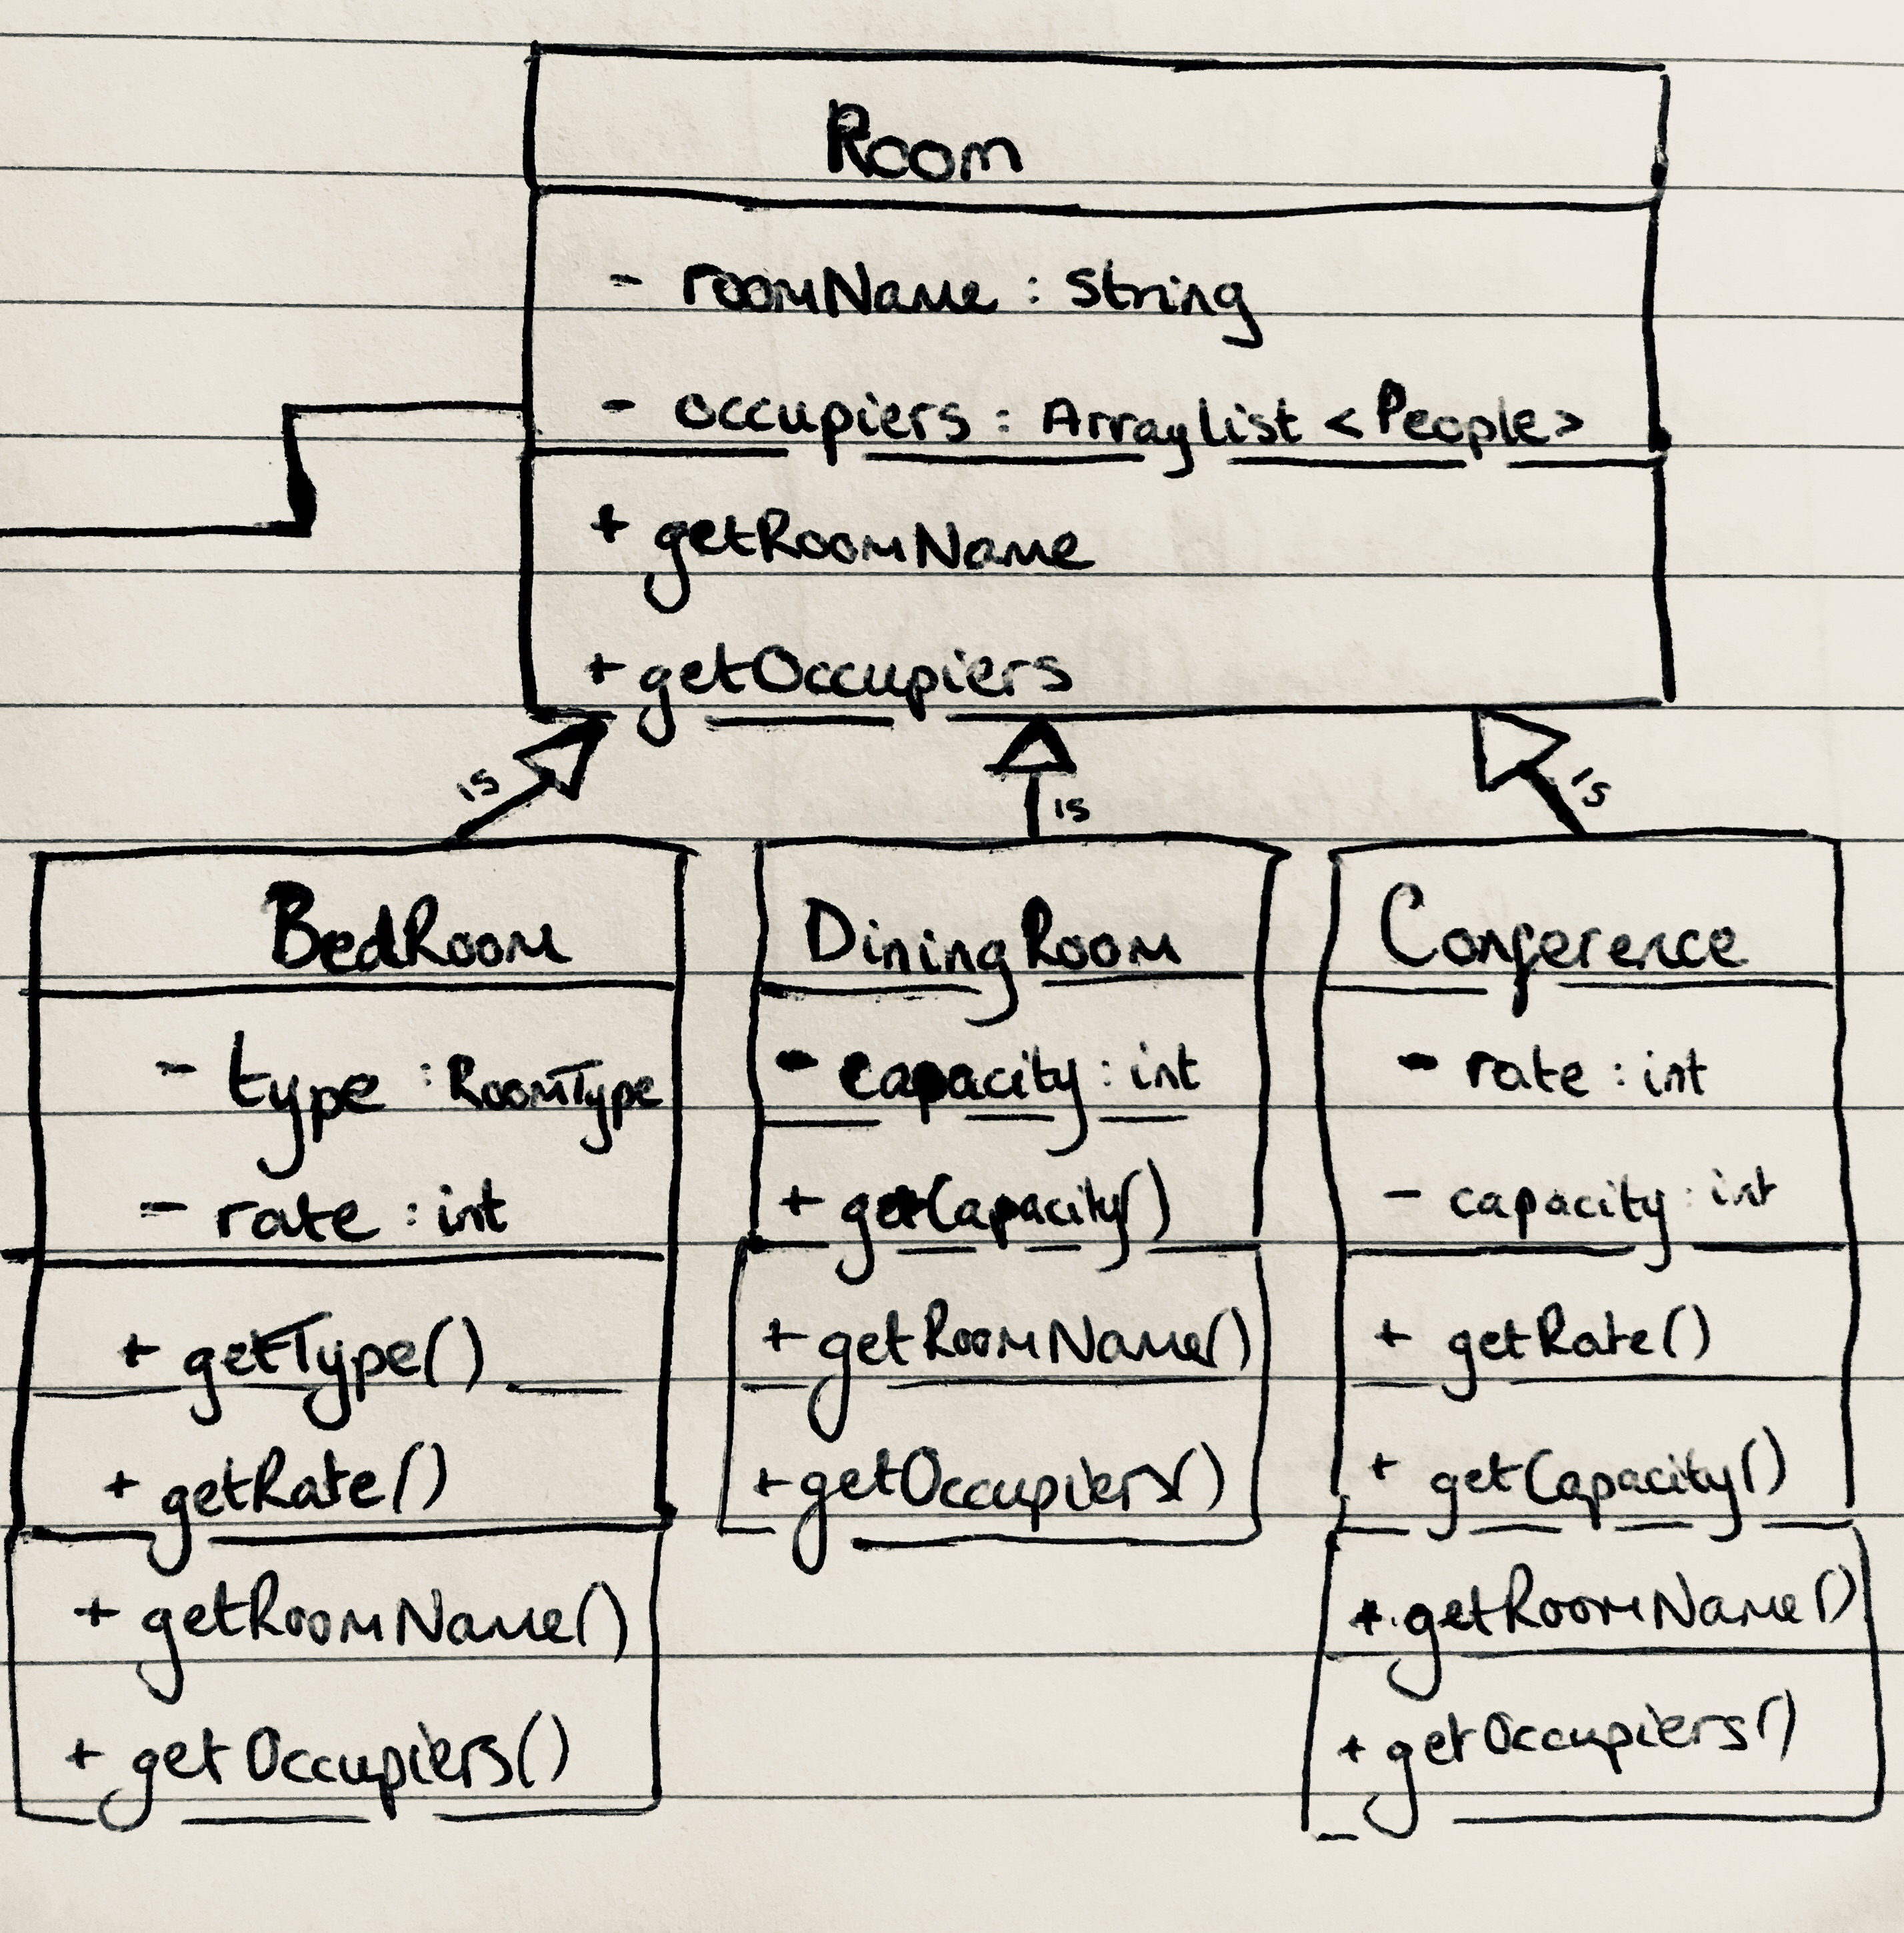 Room
- roomName : String
- occupiers : ArrayList <People>
+ getRoomName
+ getOccupiers
is
is
is
BedRoom
- type : RoomType
- rate : int
+ getType()
+ getRate()
+ getRoomName()
+ getOccupiers()
DiningRoom
- capacity : int
+ getCapacity()
+ getRoomName()
+ getOccupiers()
Conference
- rate : int
- capacity : int
+ getRate()
+ getCapacity()
+ getRoomName()
+ getOccupiers()